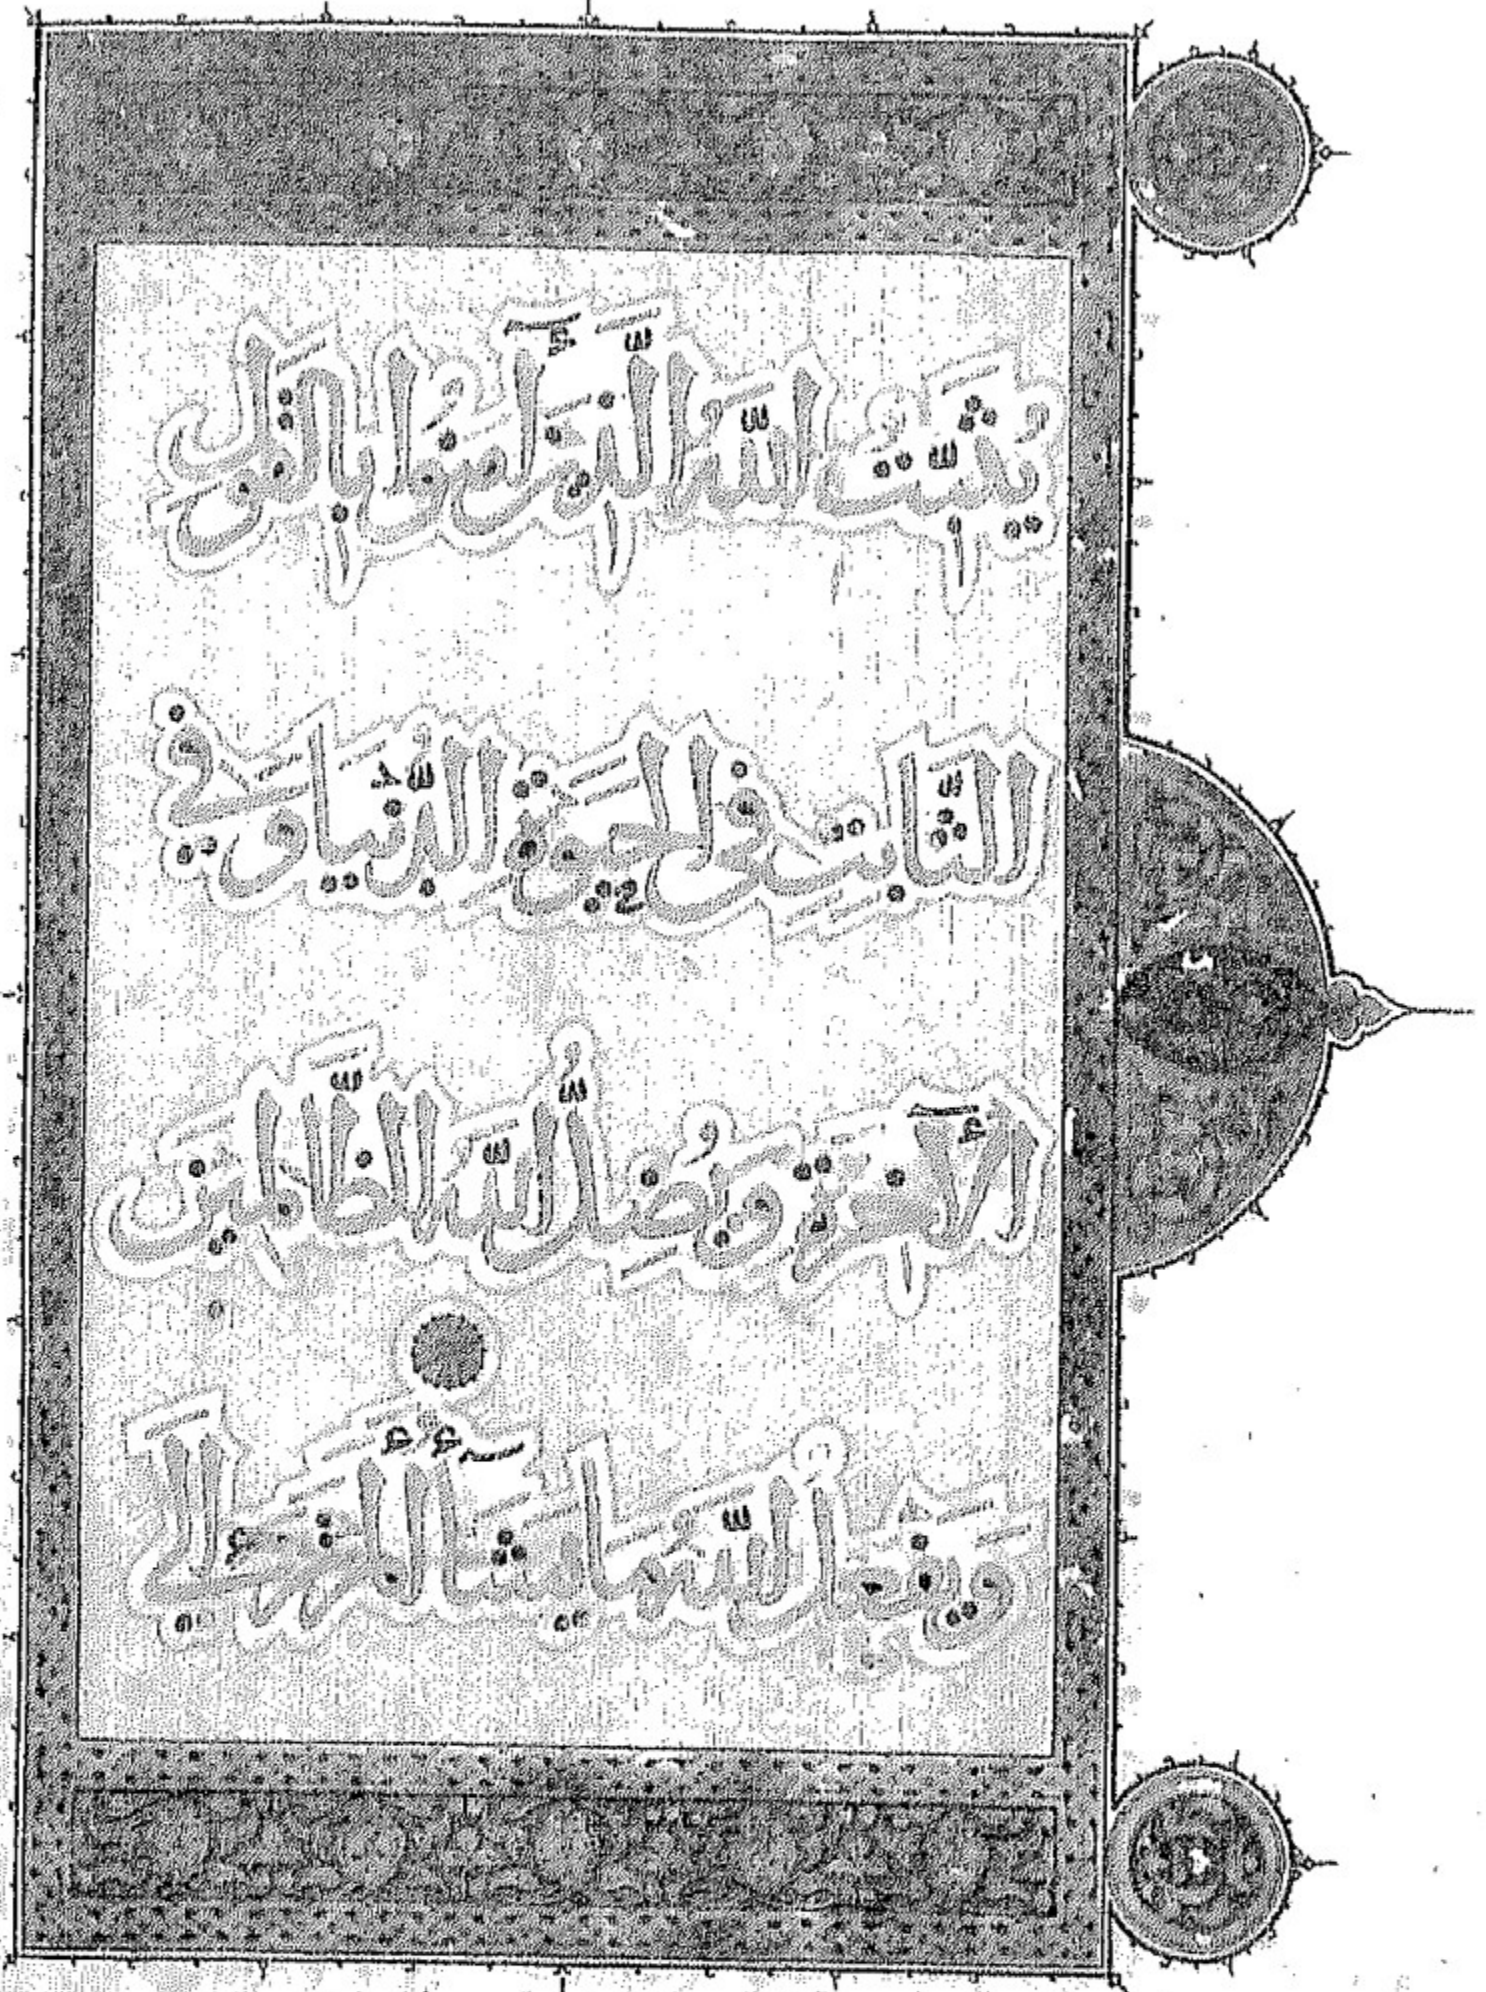 يُثَبِّتُ اللَّهُ الَّذِينَ آمَنُوا بِالْقَوْلِ
الثَّابِتِ فِي الْحَيَوةِ الدُّنْيَا وَفِي
الْآخِرَةِ وَيُضِلُّ اللَّهُ الظَّلِمِينَ
وَيَفْعَلُ اللَّهُ مَا يَشَاءُ أَلَمْ تَرَ إِلَى